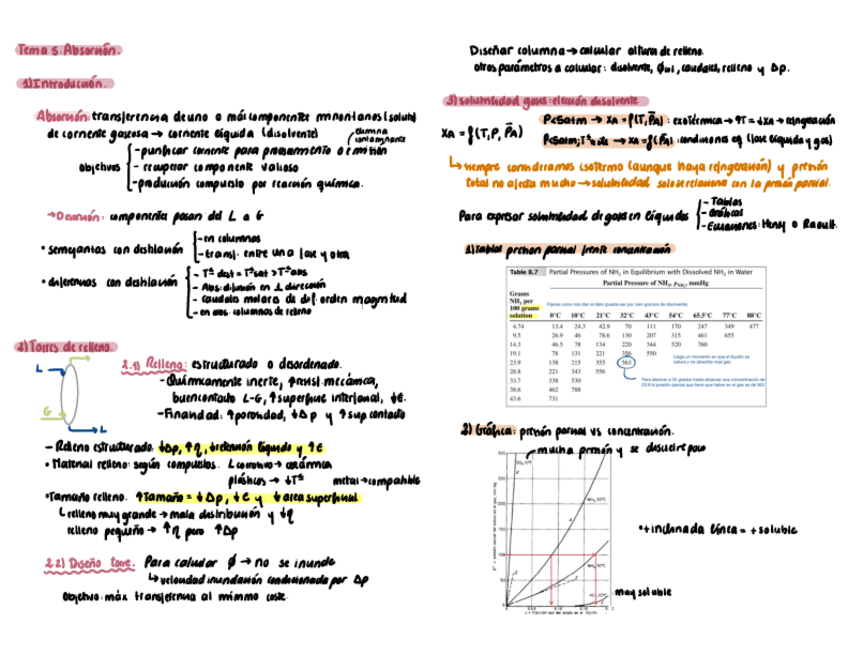 Tema 5. Absorción.
1) Introducción.
Absorción: transferencia de uno o más componentes minoritarios (soluto)
de corriente gaseosa → corriente líquida (disolvente)
elimina contaminante
objetivos
- purificar corriente para procesamiento o emisión
- recuperar componente valioso
- producción compuesto por reacción química.
→ Desorción: componentes pasan del L a G
• semejanzas con destilación
- en columnas
- transf. entre una fase y otra
• diferencias con destilación
- Tª dest = Tª sat > Tª abs
- Abs: difusión en 1 dirección
- caudales molares de dif. orden magnitud
- en abs. columnas de relleno
2) Torres de relleno.
L
G
L
2.1) Relleno: estructurado o desordenado.
- Químicamente inerte, ↑resist. mecánica,
buen contacto L-G, ↑superficie interfacial, ↓€.
- Finalidad: ↑porosidad, ↓Δp y ↑sup. contacto
- Relleno estructurado. ↓Δp, ↑η, ↓retención líquido y ↑€
• Material relleno: según compuestos. L corrosivo → cerámica
plásticos → ↓Tª metal → compatible
• Tamaño relleno. ↑Tamaño = ↓Δp, ↓€ y ↓área superficial
relleno muy grande → mala distribución y ↓η
relleno pequeño → ↑η pero ↑Δp
2.2) Diseño torre. Para calcular ϕ → no se inunde
↳ velocidad inundación condicionada por Δp
Objetivo: máx transferencia al mínimo coste.
Diseñar columna → calcular altura de relleno.
otros parámetros a calcular: disolvente, ϕ, caudales, relleno y Δp.
3) Solubilidad gases: elección disolvente
XA = f(T, P, P̄A)
P<5atm → XA = f(T, P̄A): exotérmica → ↑T = ↓XA → refrigeración
P<5atm; Tª cte → XA = f(P̄A): condiciones eq (fase líquido y gas)
↳ siempre consideramos isotermo (aunque haya refrigeración) y presión
total no afecta mucho → solubilidad solo se relaciona con la presión parcial.
Para expresar solubilidad de gases en líquidos
- Tablas
- Gráficas
- Ecuaciones: Henry o Raoult.
1) Tabla: presión parcial frente concentración
Table 8.7 Partial Pressures of NH3 in Equilibrium with Dissolved NH3 in Water
Partial Pressure of NH3, pNH3, mmHg
Grams NH3 per 100 grams solution
Fijarse como nos dan el dato (puede ser por cien gramos de disolvente)
0°C 10°C 21°C 32°C 43°C 54°C 65.5°C 77°C 88°C
4.74 13.4 24.3 42.9 70 111 170 247 349 477
9.5 26.9 46 78.6 130 207 315 461 655
14.3 46.5 78 134 220 344 520 760
19.1 78 131 221 356 550
23.9 138 215 355 563
28.8 221 343 556
33.7 338 530
38.6 462 788
43.6 731
Llega un momento en que el líquido se satura y no absorbe mas gas
2) Gráfica: presión parcial vs concentración.
mucha presión y se disuelve poco
• + inclinada línea = + soluble
: muy soluble